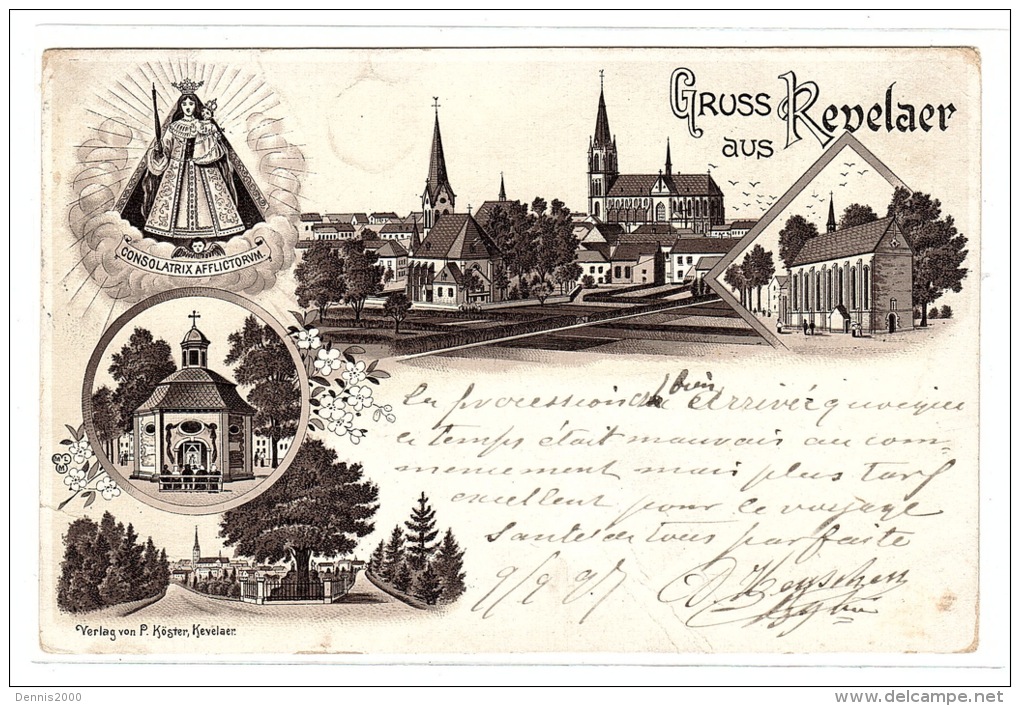 GRUSS
aus Kevelaer
CONSOLATRIX AFFLICTORVM.
La procession est bien arrivée quoique
le temps était mauvais au com-
mencement mais plus tard
excellent pour le voyage
Santé de tous parfaite
9/9 97
M L M
Verlag von P. Köster, Kevelaer.
Dennis2000
www.delcampe.net